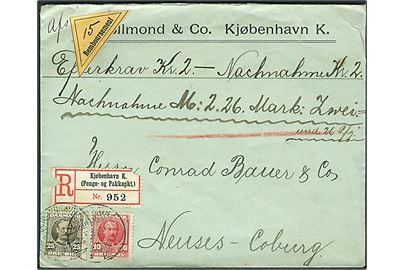 Afs.
Illmond & Co. Kjøbenhavn K.
15
Remboursement
Efterkrav Kr. 2 — Nachnahme Kr. 2.
Nachnahme M: 2.26 Mark: Zwei
und 26 Pfg.
Herren Conrad Bauer & Co
R
Kjøbenhavn K.
(Penge- og Pakkepkt.)
Nr. 952
Neuses - Coburg.
25 25
10 10